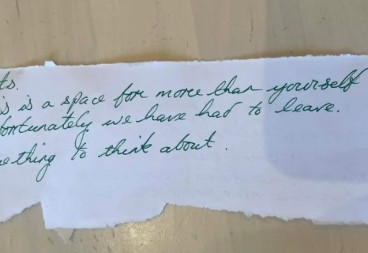 ts.
is is a space for more than yourself
fortunately we have had to leave.
ething to think about.